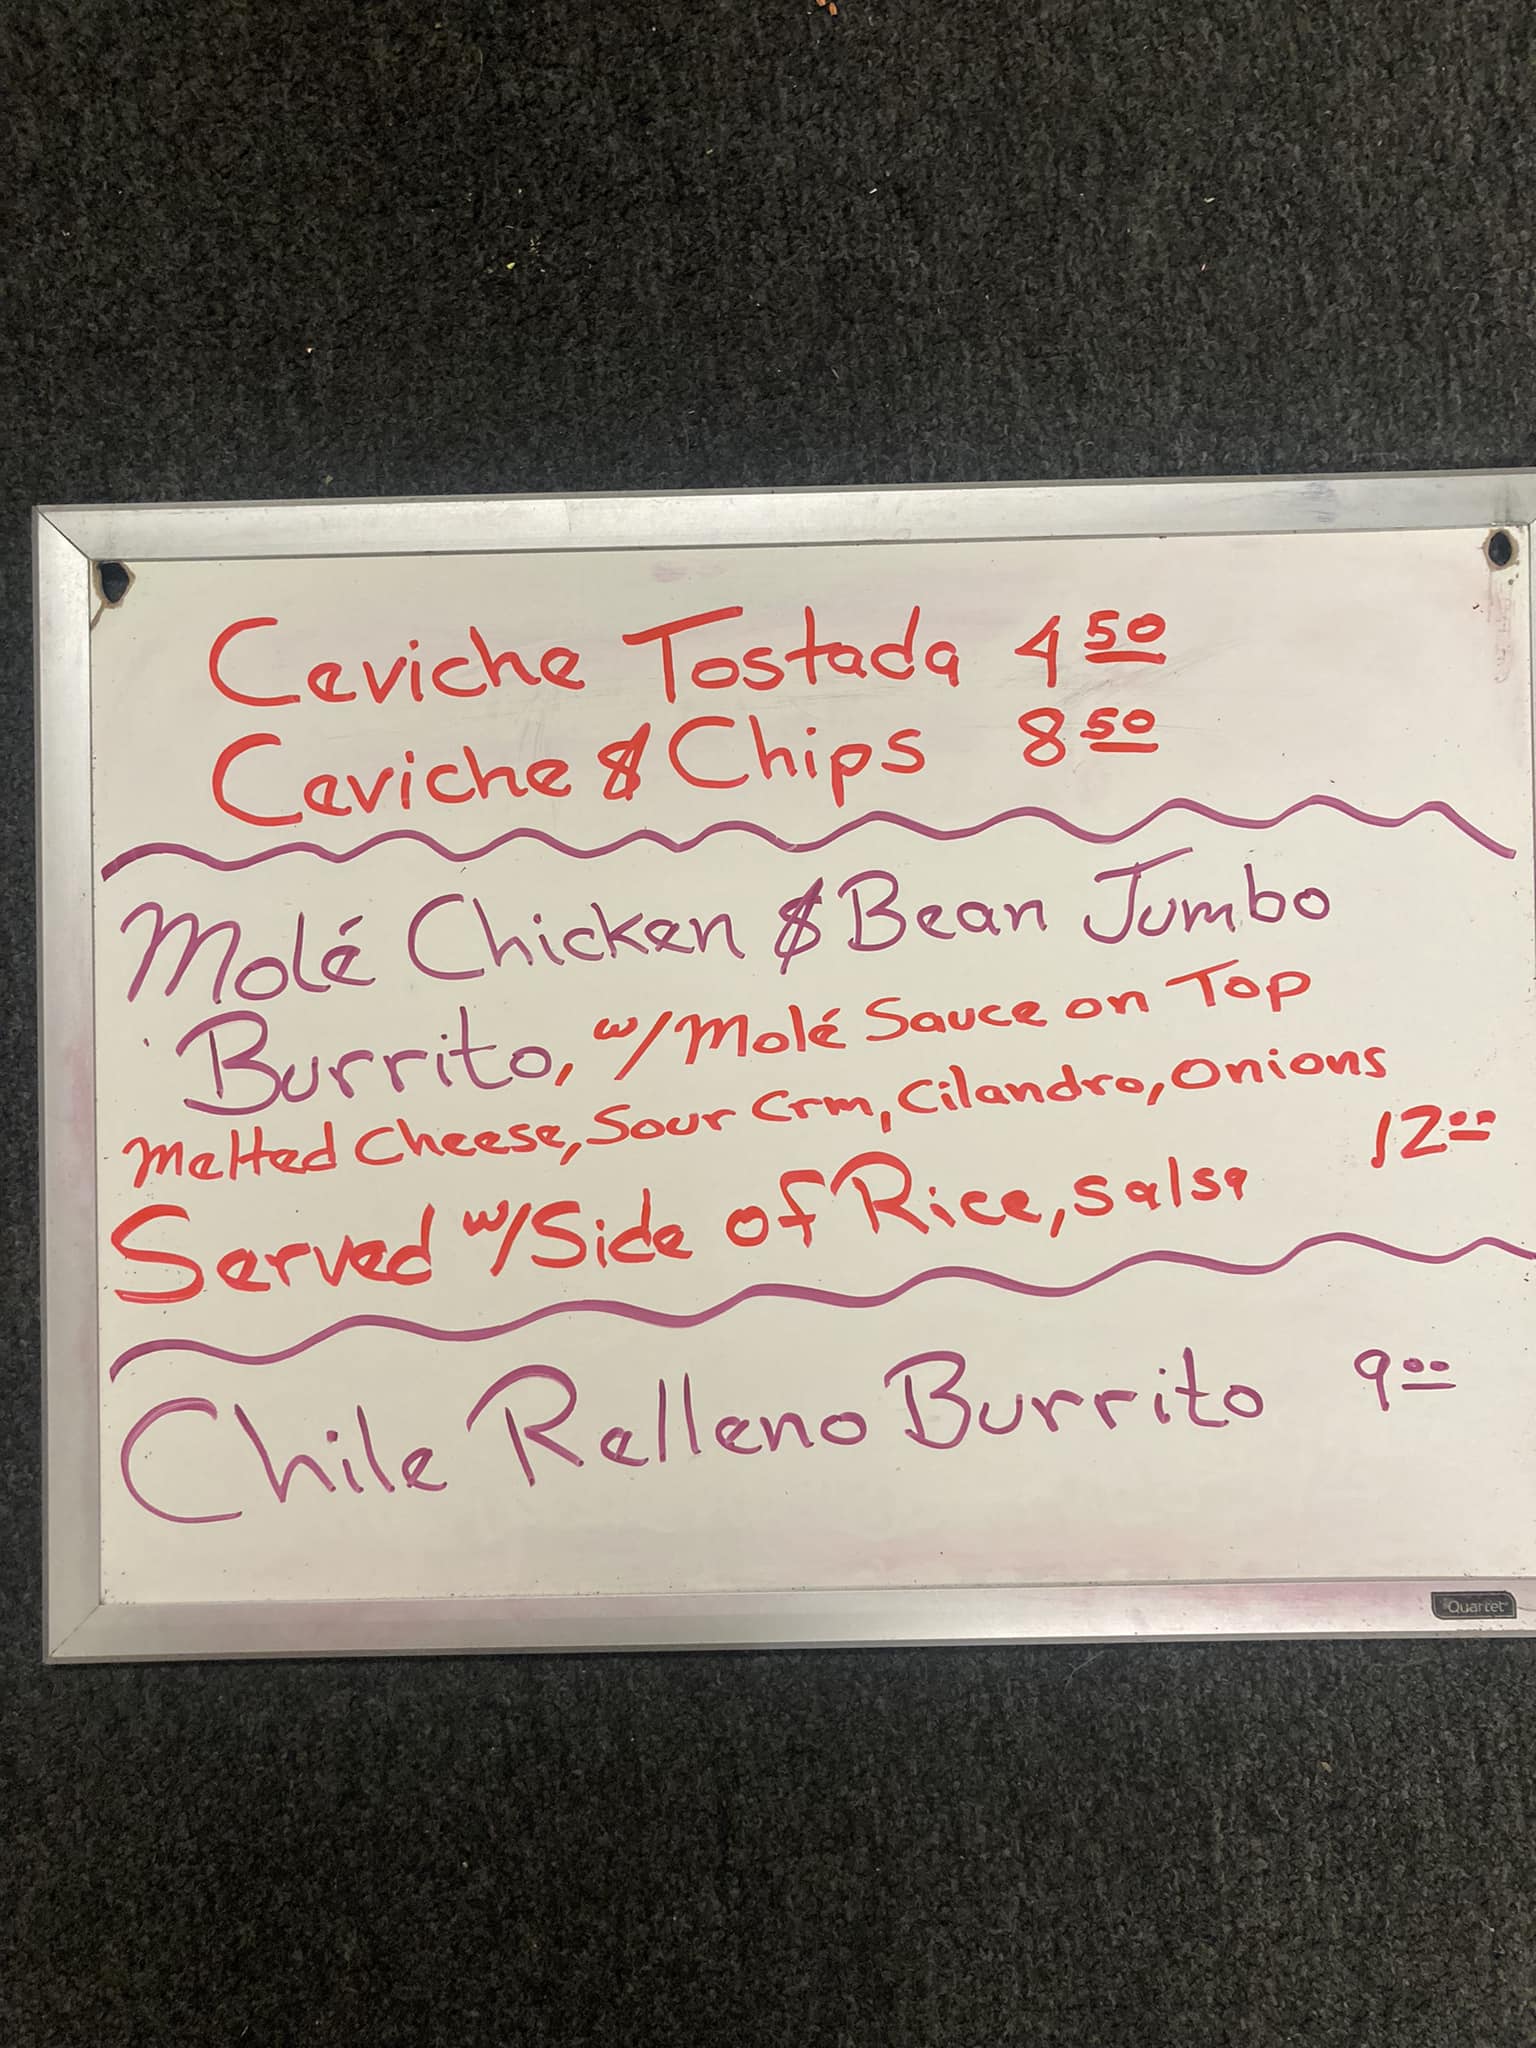 Ceviche Tostada 4 50
Ceviche & Chips 8 50
Molé Chicken & Bean Jumbo
Burrito, w/Molé Sauce on Top
Melted Cheese, Sour Crm, Cilandro, Onions
Served w/Side of Rice, Salsa 12 00
Chile Relleno Burrito 9 00
Quartet